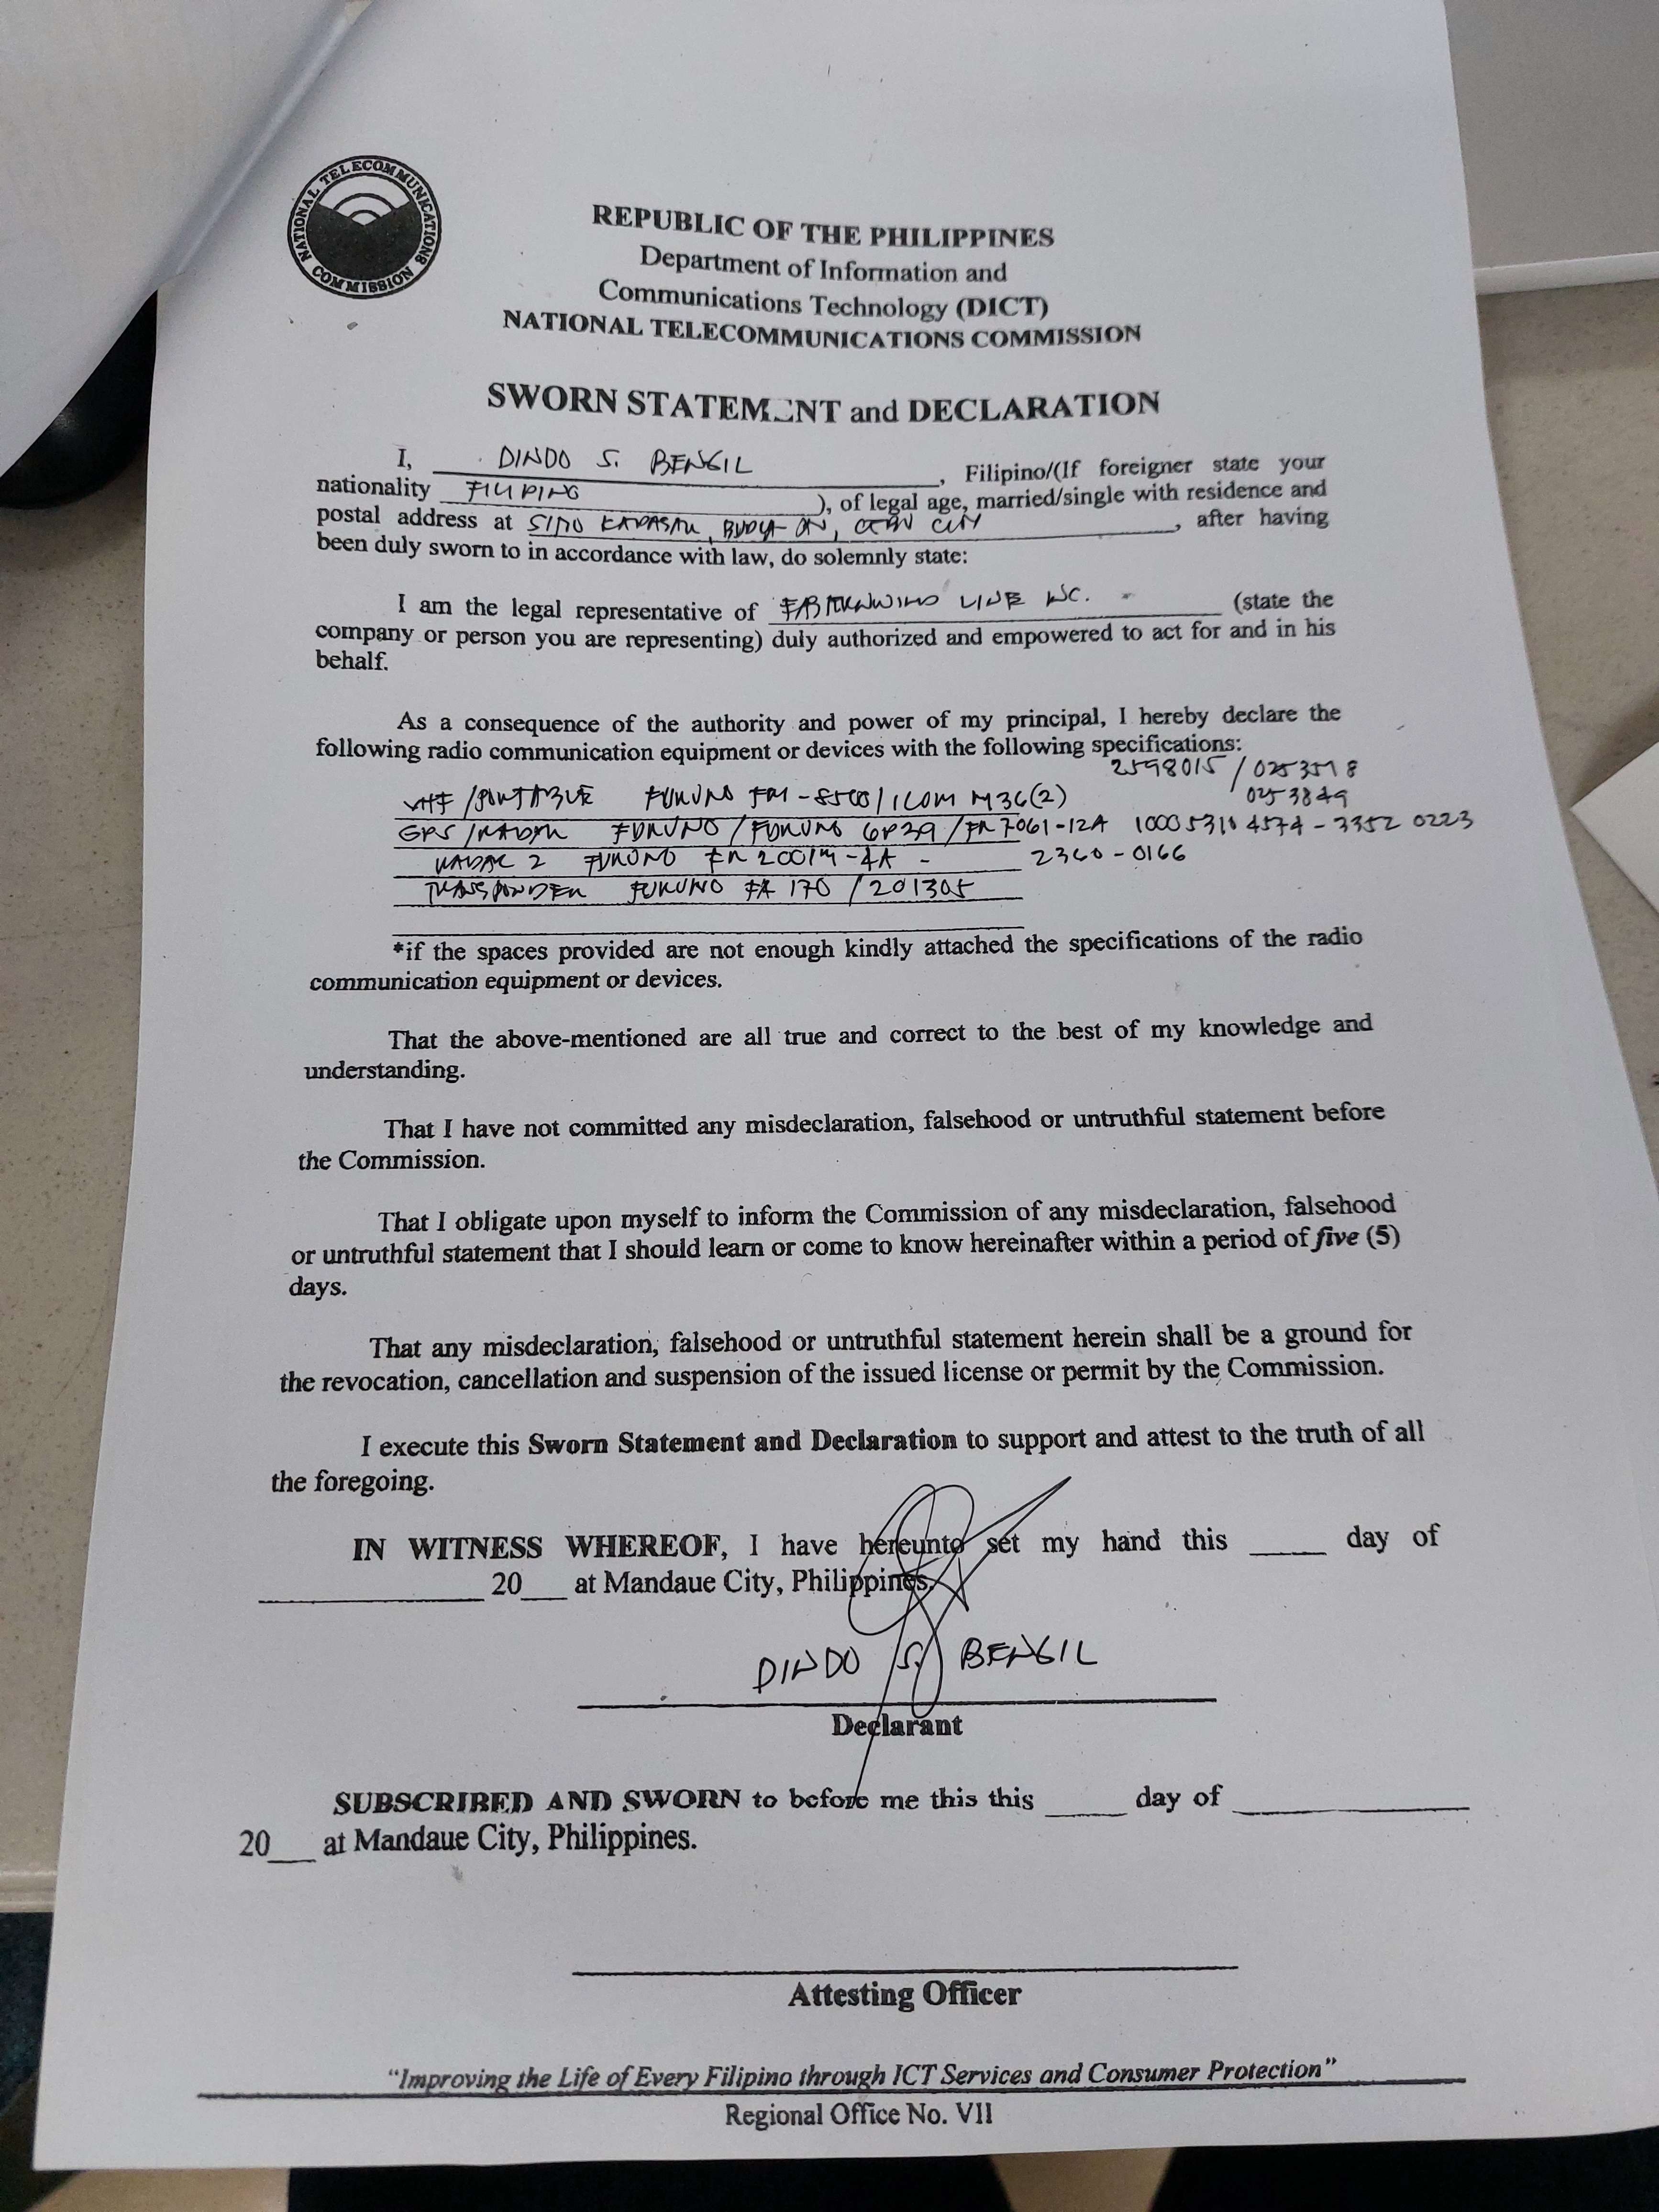 NATIONAL TELECOMMUNICATIONS COMMISSION
REPUBLIC OF THE PHILIPPINES
Department of Information and
Communications Technology (DICT)
NATIONAL TELECOMMUNICATIONS COMMISSION
SWORN STATEMENT and DECLARATION
I, DINDO S. BENSIL, Filipino/(If foreigner state your
nationality FILIPINO), of legal age, married/single with residence and
postal address at SITIO, CEBU CITY, after having
been duly sworn to in accordance with law, do solemnly state:
I am the legal representative of LINE INC. (state the
company or person you are representing) duly authorized and empowered to act for and in his
behalf.
As a consequence of the authority and power of my principal, I hereby declare the
following radio communication equipment or devices with the following specifications:
2598015 / 0253518
VHF /PORTABLE FURUNO FM-8500/ICOM M36(2) 0253849
GPS/RADAR FURUNO/FURUNO GP39/FR7061-12A 100053104574-3352 0223
RADAR 2 FURUNO - 2360-0166
TRANSPONDER FURUNO FA 170 / 201305
*if the spaces provided are not enough kindly attached the specifications of the radio
communication equipment or devices.
That the above-mentioned are all true and correct to the best of my knowledge and
understanding.
That I have not committed any misdeclaration, falsehood or untruthful statement before
the Commission.
That I obligate upon myself to inform the Commission of any misdeclaration, falsehood
or untruthful statement that I should learn or come to know hereinafter within a period of five (5)
days.
That any misdeclaration, falsehood or untruthful statement herein shall be a ground for
the revocation, cancellation and suspension of the issued license or permit by the Commission.
I execute this Sworn Statement and Declaration to support and attest to the truth of all
the foregoing.
IN WITNESS WHEREOF, I have hereunto set my hand this _____ day of
_______________ 20___ at Mandaue City, Philippines.
DINDO S. BENSIL
Declarant
SUBSCRIBED AND SWORN to before me this this _____ day of _______________
20___ at Mandaue City, Philippines.
Attesting Officer
"Improving the Life of Every Filipino through ICT Services and Consumer Protection"
Regional Office No. VII